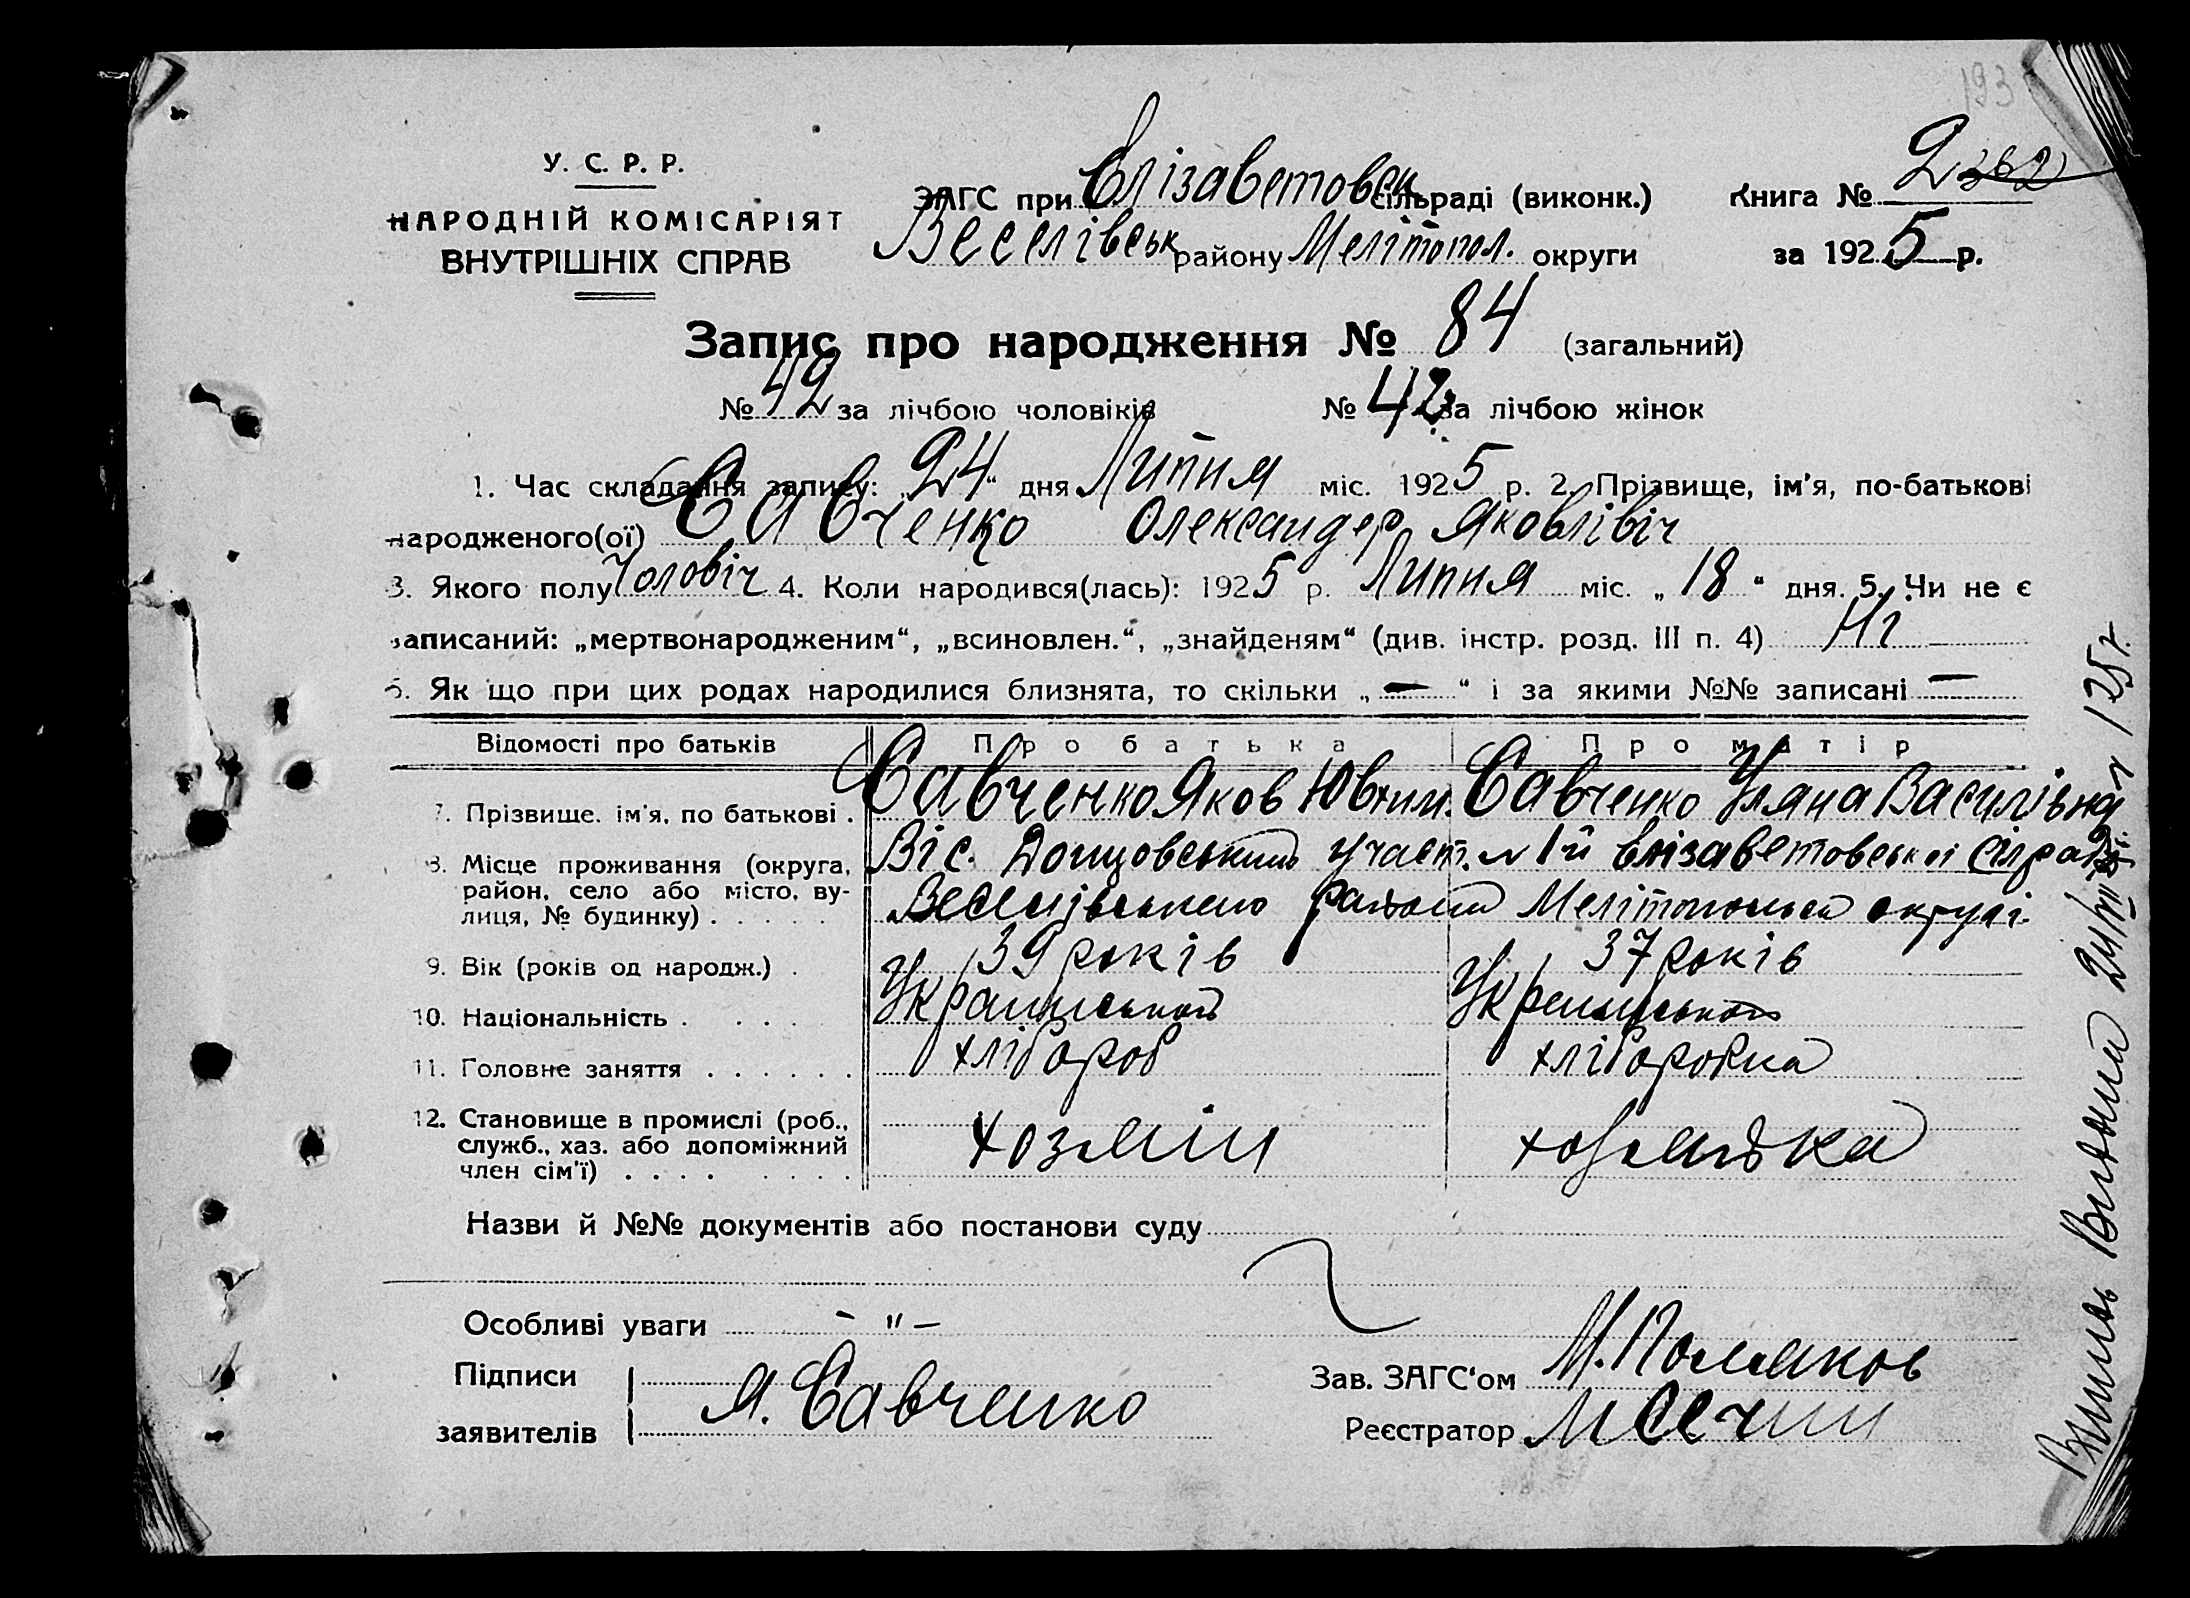 193
У. С. Р. Р.
НАРОДНІЙ КОМІСАРІЯТ
ВНУТРІШНІХ СПРАВ
ЗАГС при Єлізаветовськ сільраді (виконк.)
Веселівськ району Мелітопол. округи
Книга № 2
за 1925 р.
Запис про народження № 84 (загальний)
№ 42 за лічбою чоловіків № 42 за лічбою жінок
1. Час складання запису: „24“ дня Липня міс. 1925 р. 2. Прізвище, ім'я, по-батькові
народженого(ої) Савченко Олександер Яковлівіч
3. Якого полу Чоловіч 4. Коли народився(лась): 1925 р. Липня міс. „18“ дня. 5. Чи не є
записаний: „мертвонародженим“, „всиновлен.“, „знайденям“ (див. інстр. розд. III п. 4) Ні
6. Як що при цих родах народилися близнята, то скільки „—“ і за якими №№ записані —
Відомості про батьків Про батька Про матір
7. Прізвище, ім'я, по батькові . Савченко Яков Ювхим. Савченко Уляна Василівна
8. Місце проживання (округа, район, село або місто, вулиця, № будинку) . . . . .
Віс. Донцовський участ. №1й Єлізаветовської сілради
Веселівського району Мелітопольськ округі.
9. Вік (років од народж.) . 39 років 37 років
10. Національність . . . . Українськой Українськой
11. Головне заняття . . . . . . хлібороб хліборобка
12. Становище в промислі (роб., служб., хаз. або допоміжний член сім'ї) . . . . . . . . хозяін хозяйка
Назви й №№ документів або постанови суду
Особливі уваги – " –
Підписи
заявителів Я. Савченко
Зав. ЗАГС'ом М. Поляков
Реєстратор
24/VII 25 г.